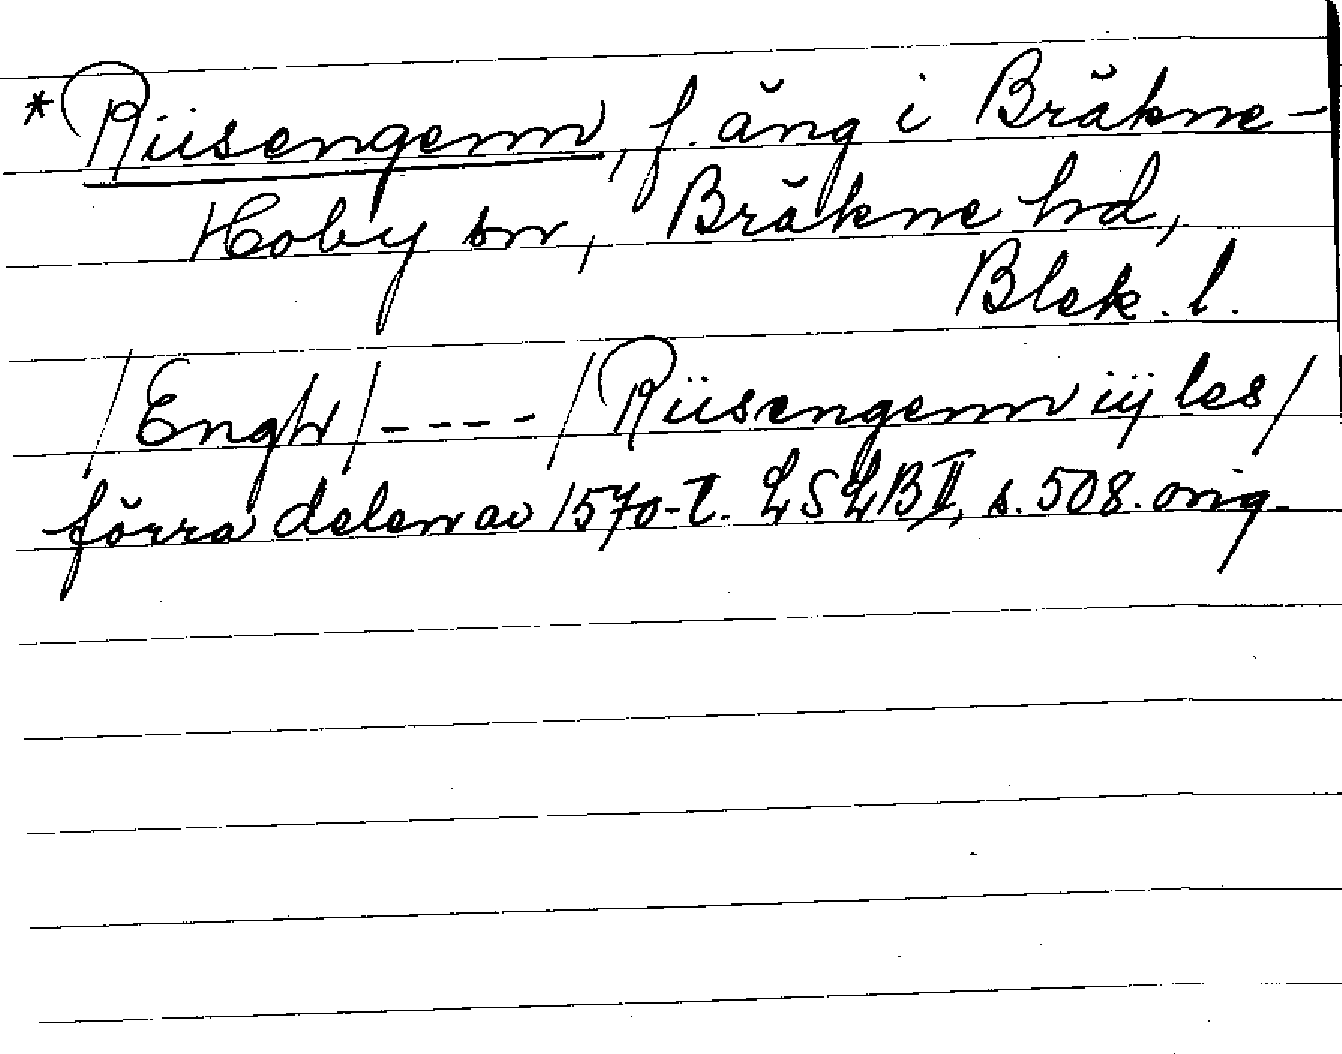 *Riisengenn, f. äng i Bräkne-
Hoby sn, Bräkne hd,
Blek. l.
/Engh/----/Riisengenn iij les/
förra delen av 1570-t. LSLB II, s. 508. orig.